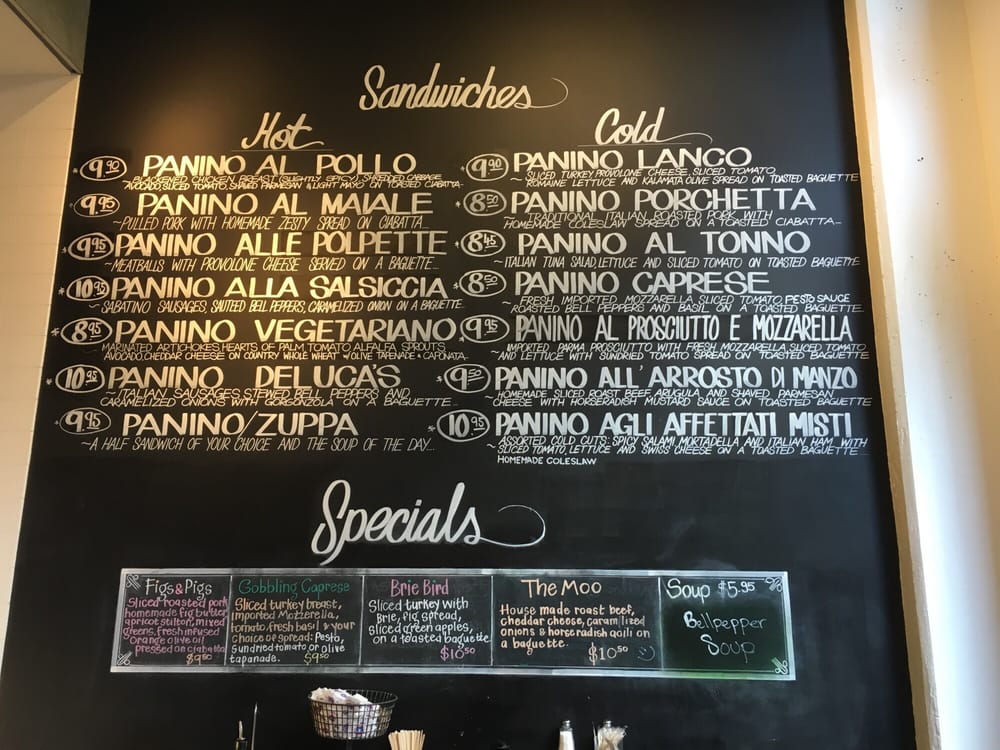 Sandwiches
Hot
9.90 PANINO AL POLLO
~BLACKENED CHICKEN BREAST (SLIGHTLY SPICY), SHREDDED CABBAGE
AVOCADO, SLICED TOMATO, SHAVED PARMESAN & LIGHT MAYO ON TOASTED CIABATTA~
9.95 PANINO AL MAIALE
~PULLED PORK WITH HOMEMADE ZESTY SPREAD ON CIABATTA~
9.95 PANINO ALLE POLPETTE
~MEATBALLS WITH PROVOLONE CHEESE SERVED ON A BAGUETTE~
PANINO ALLA SALSICCIA
~SABATINO SAUSAGES, SAUTEED BELL PEPPERS, CARAMELIZED ONION ON A BAGUETTE~
8.95 PANINO VEGETARIANO
MARINATED ARTICHOKES, HEARTS OF PALM TOMATO ALFALFA SPROUTS
AVOCADO, CHEDDAR CHEESE ON COUNTRY WHOLE WHEAT W/OLIVE TAPENADE & CAPONATA~
10.95 PANINO DELUCA'S
~ITALIAN SAUSAGES STEWED BELL PEPPERS AND
CARAMELIZED ONIONS WITH GORGONZOLA ON A BAGUETTE~
9.95 PANINO/ZUPPA
~A HALF SANDWICH OF YOUR CHOICE AND THE SOUP OF THE DAY~
Cold
9.90 PANINO LANCO
~SLICED TURKEY, PROVOLONE CHEESE, SLICED TOMATO
ROMAINE LETTUCE AND KALAMATA OLIVE SPREAD ON TOASTED BAGUETTE
8.50 PANINO PORCHETTA
~TRADITIONAL ITALIAN ROASTED PORK WITH
HOMEMADE COLESLAW SPREAD ON A TOASTED CIABATTA~
8.45 PANINO AL TONNO
~ITALIAN TUNA SALAD, LETTUCE AND SLICED TOMATO ON TOASTED BAGUETTE
8.50 PANINO CAPRESE
~FRESH IMPORTED MOZZARELLA SLICED TOMATO PESTO SAUCE
ROASTED BELL PEPPERS AND BASIL ON A TOASTED BAGUETTE
9.95 PANINO AL PROSCIUTTO E MOZZARELLA
IMPORTED PARMA PROSCIUTTO WITH FRESH MOZZARELLA SLICED TOMATO
~AND LETTUCE WITH SUNDRIED TOMATO SPREAD ON TOASTED BAGUETTE
9.50 PANINO ALL'ARROSTO DI MANZO
~HOMEMADE SLICED ROAST BEEF, ARUGULA AND SHAVED PARMESAN
CHEESE WITH HORSERADISH MUSTARD SAUCE ON TOASTED BAGUETTE
10.95 PANINO AGLI AFFETTATI MISTI
~ASSORTED COLD CUTS: SPICY SALAMI MORTADELLA AND ITALIAN HAM WITH
SLICED TOMATO, LETTUCE AND SWISS CHEESE ON A TOASTED BAGUETTE~
HOMEMADE COLESLAW
Specials
Figs & Pigs
Sliced roasted pork
homemade fig butter,
apricot stilton, mixed
greens, fresh infused
orange olive oil
pressed on ciabatta
$9.50
Gobbling Caprese
Sliced turkey breast,
imported Mozzerella,
tomato, fresh basil & your
choice of spread: Pesto,
Sundried tomato or olive
tapanade. $9.50
Brie Bird
Sliced turkey with
Brie, fig spread,
sliced green apples,
on a toasted baguette
$10.50
The Moo
House made roast beef,
cheddar cheese, caramlized
onions & horseradish aoili on
a baguette. $10.50
Soup $5.95
Bellpepper
Soup